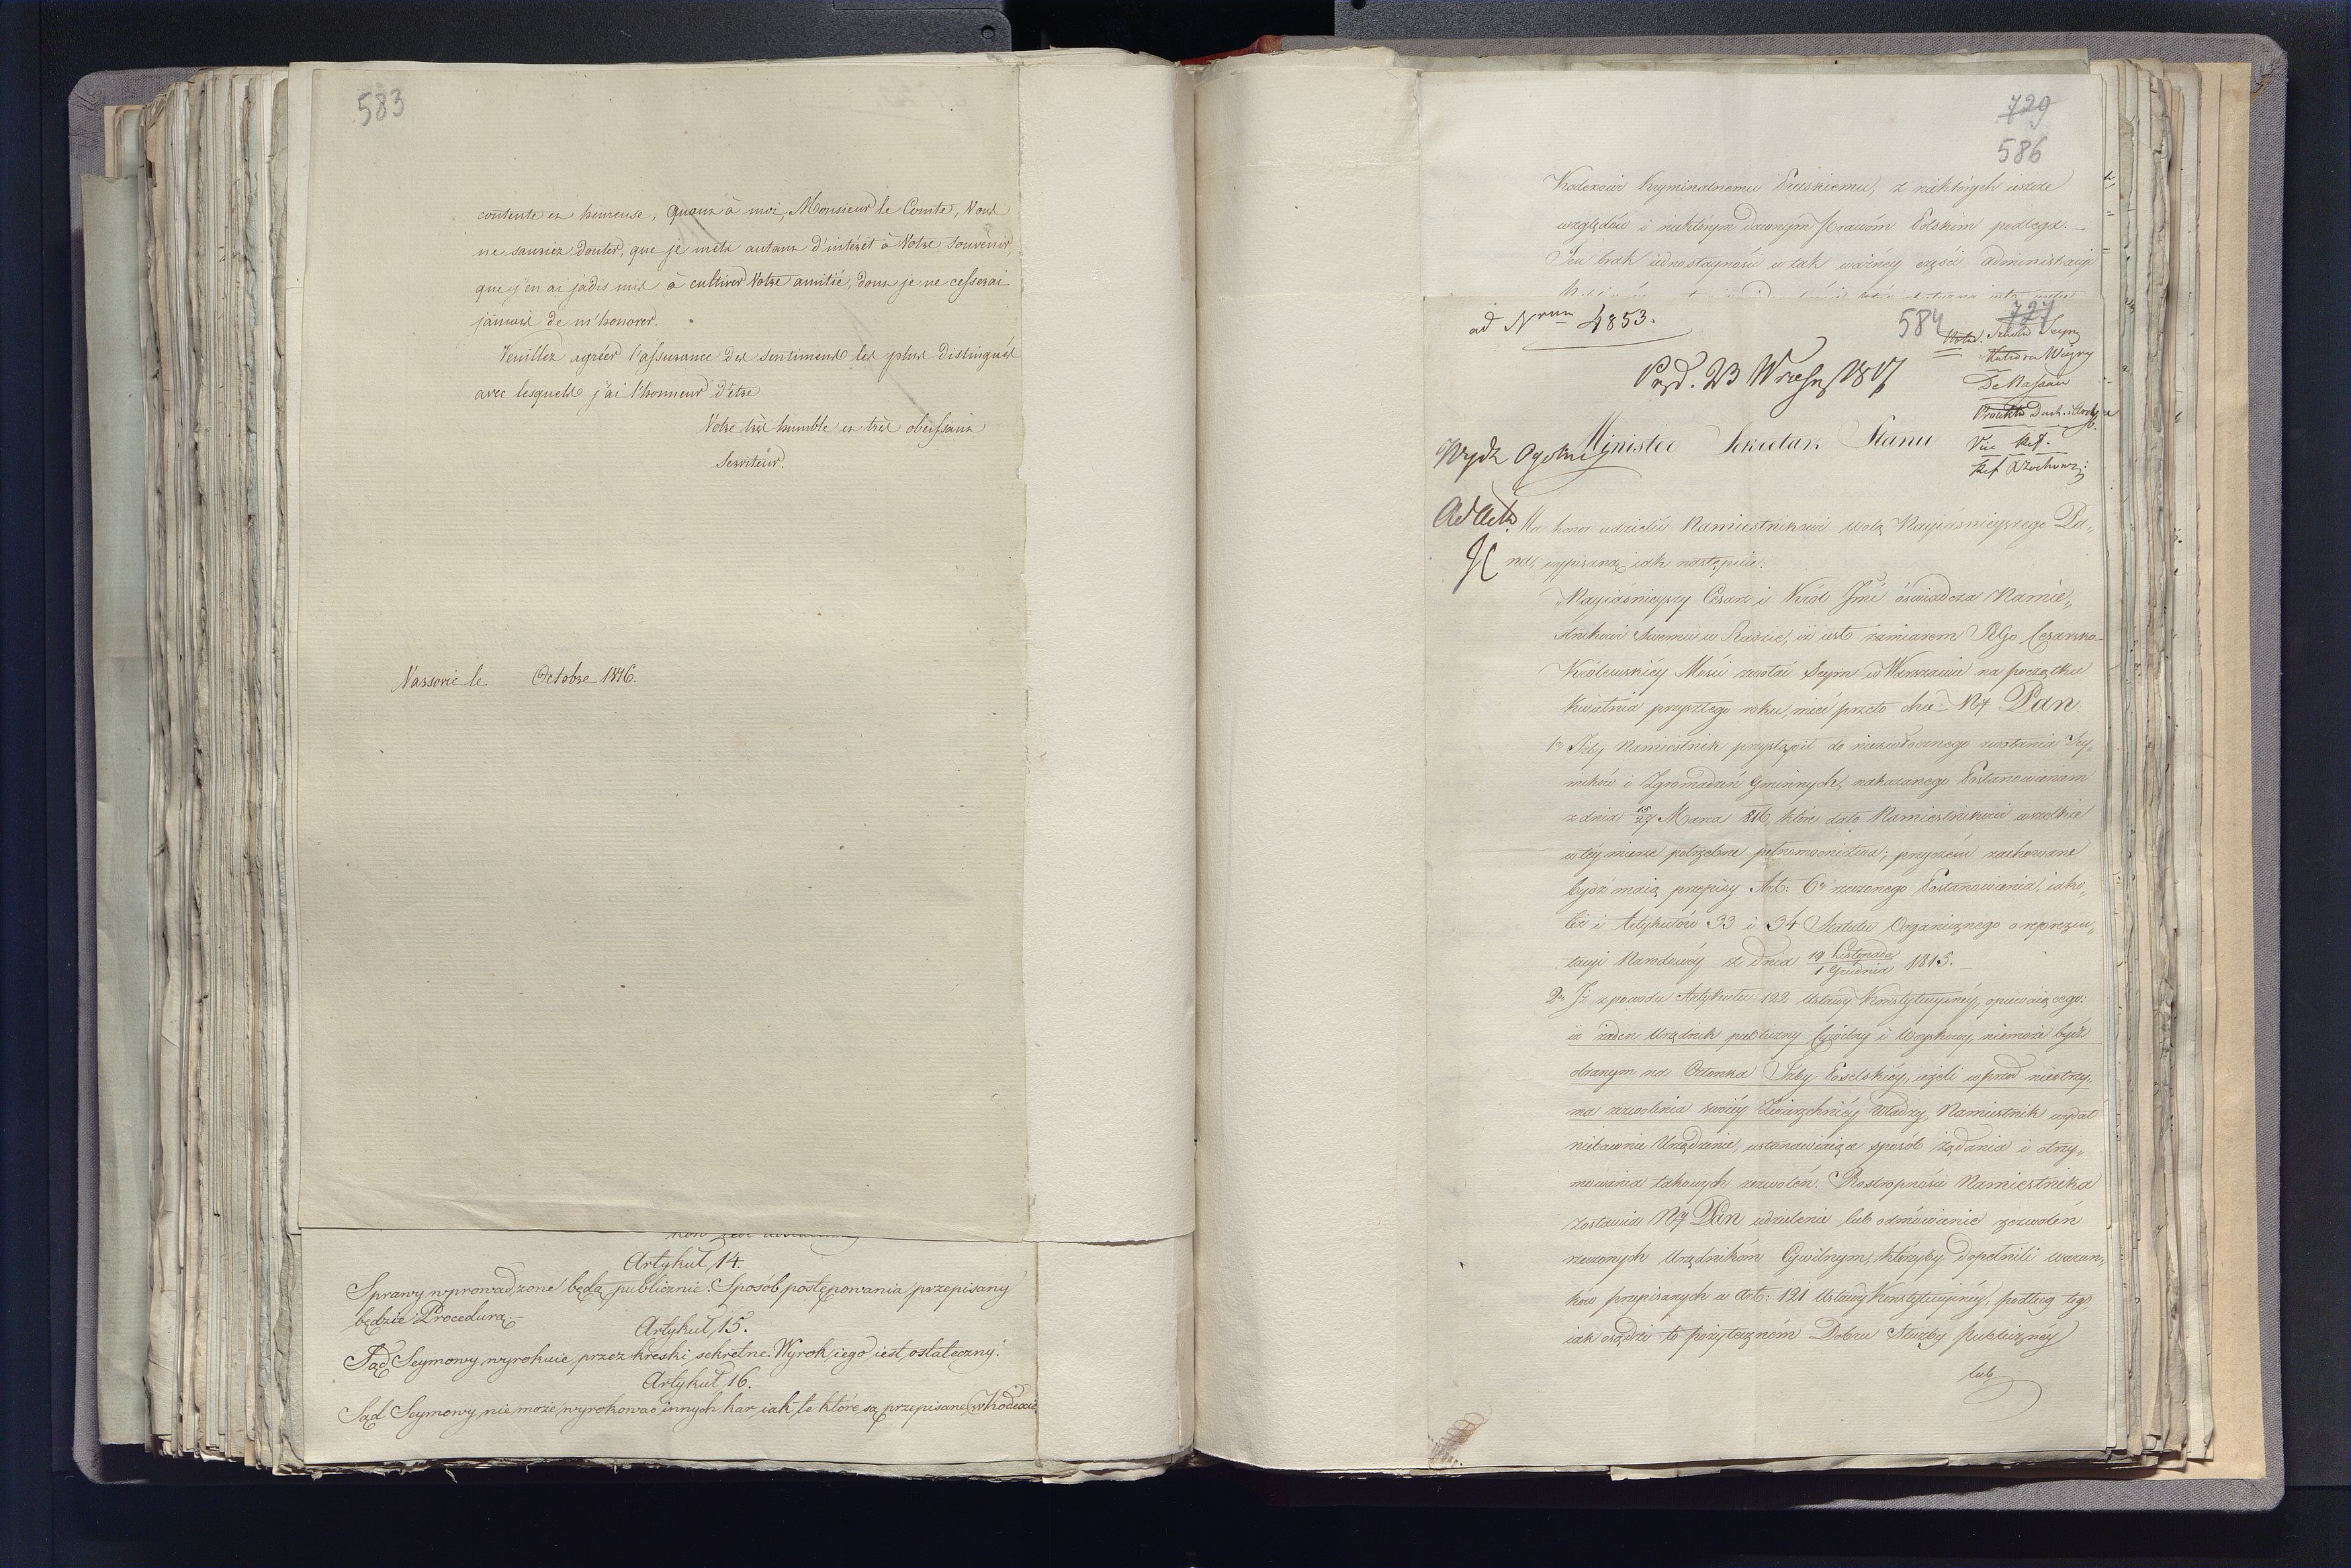 583
contente et heureuse, quant à moi, Monsieur le Comte, Vous
ne sauriez douter, que je mets autant d'intérêt à Votre souvenir,
que j'en ai jadis mis à cultiver Votre amitié, dont je ne cesserai
jamais de m'honorer.
Veuillez agréer l'assurance des sentiments les plus distingués
avec lesquels j'ai l'honneur d'etre
Votre très humble et très obeissant
Serviteur.
Varsovie le Octobre 1816.
Artykuł 14.
Sprawy wprowadzone będą publicznie. Sposób postępowania przepisany
będzie Procedurą.
Artykuł 15.
Sąd Seymowy wyrokuie przez kreski sekretne. Wyrok iego iest ostateczny.
Artykuł 16.
Sąd Seymowy nie może wyrokować innych kar, iak te które są przepisane w kodexie
729
586
Kodexowi Kryminalnemu Pruskiemu, z niektórych ieszcze
względów i niektórym dawnym Prawom Polskim podlega.
Ten brak iednostayności w tak ważney części administracyi
ad Nrum 4853.
584
727
Prd. 23 Wrześ 1817
Wydz Ogolny
Minister Sekretarz Stanu
Ad Acta
Ma honor udzielić Namiestnikowi wolą Nayiaśnieyszego Pa„
na, wypisaną iak następuie:
„Nayiaśnieyszy Cesarz i Król Jmć oświadcza Namie„
stnikowi Swemu w Radzie, iż iest zamiarem JEgo Cesarsko
Królewskiéy Mości zwołać Seym w Warszawie na początku
Kwietnia przyszłego roku, mieć przeto chce NJ Pan.
1o Żeby Namiestnik przystąpił do niezwłocznego zwołania Sey„
mików i Zgromadzeń Gminnych, nakazanego Postanowieniem
z dnia 15/27 Marca 816, które dało Namiestnikowi wszelkie
w téy mierze potrzebne pełnomocnictwa; przyczém zachowane
bydź maią przepisy Art: 6o rzeczonego Postanowienia, iako„
też i Artykułów 33 i 34 Statutu Organicznego o reprezen„
tacyi Narodowéy z dnia 19 Listopada / 1 Grudnia 1815.
2o Iż z powodu Artykułu 122 Ustawy Konstytucyinéy, opiewaiącego:
iż żaden Urzędnik publiczny Cywilny i Woyskowy, niemoże bydź
obranym na Członka Izby Poselskiéy, ieżeli wprzód nieotrzy„
ma zezwolenia swoiéy Zwierzchniéy Władzy, Namiestnik wydał
niebawnie Urządzenie, ustanawiaiące sposób żądania i otrzy„
mowania takowych zezwoleń. Roztropności Namiestnika
zostawia NJ Pan udzielenie lub odmówienie zezwoleń
rzeczonych Urzędnikom Cywilnym, którzyby dopełnili warun„
ków przepisanych w Art: 121 Ustawy Konstytucyinéy, podług tego
iak osądzi to pożyteczném Dobru Służby Publicznéy
lub